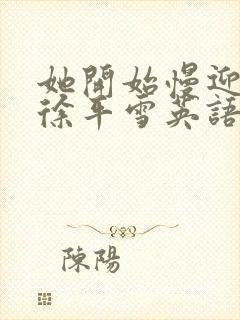 她開始慢迎
徐平雪英語
陳陽